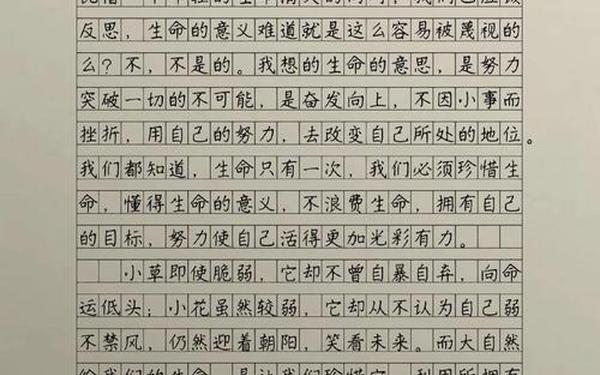 反思，生命的意义难道就是这么容易被蔑视的
么？不，不是的。我想的生命的意思，是努力
突破一切的不可能，是奋发向上，不因小事而
挫折，用自己的努力，去改变自己所处的地位。
我们都知道，生命只有一次，我们必须珍惜生
命，懂得生命的意义，不浪费生命，拥有自己
的目标，努力使自己活得更加光彩有力。
小草即使脆弱，它却不曾自暴自弃，向命
运低头；小花虽然较弱，它却从不认为自己弱
不禁风，仍然迎着朝阳，笑看未来。而大自然
给我们的生命，是让我们珍惜它，利用所拥有